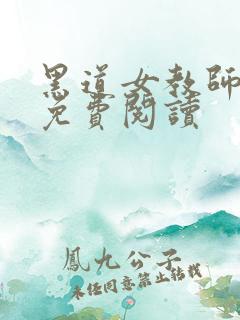 黑道女教師
免費閱讀
鳳九公子
未經同意禁止轉載